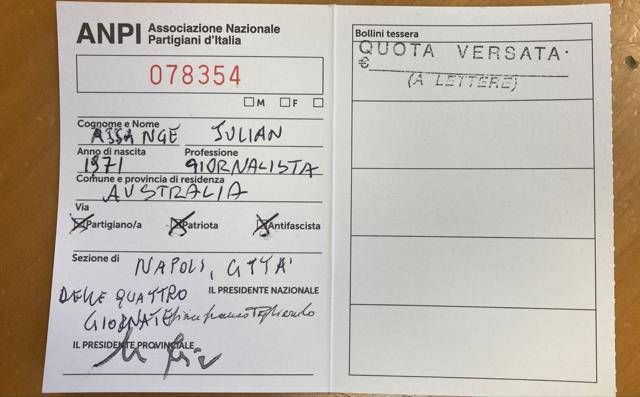 ANPI Associazione Nazionale
Partigiani d'Italia
078354
M F
Cognome e Nome
ASSANGE JULIAN
Anno di nascita Professione
1971 GIORNALISTA
Comune e provincia di residenza
AUSTRALIA
Via
Partigiano/a Patriota Antifascista
Sezione di
NAPOLI, CITTA'
DELLE QUATTRO
IL PRESIDENTE NAZIONALE
GIORNATE
IL PRESIDENTE PROVINCIALE
Bollini tessera
QUOTA VERSATA
€
(A LETTERE)